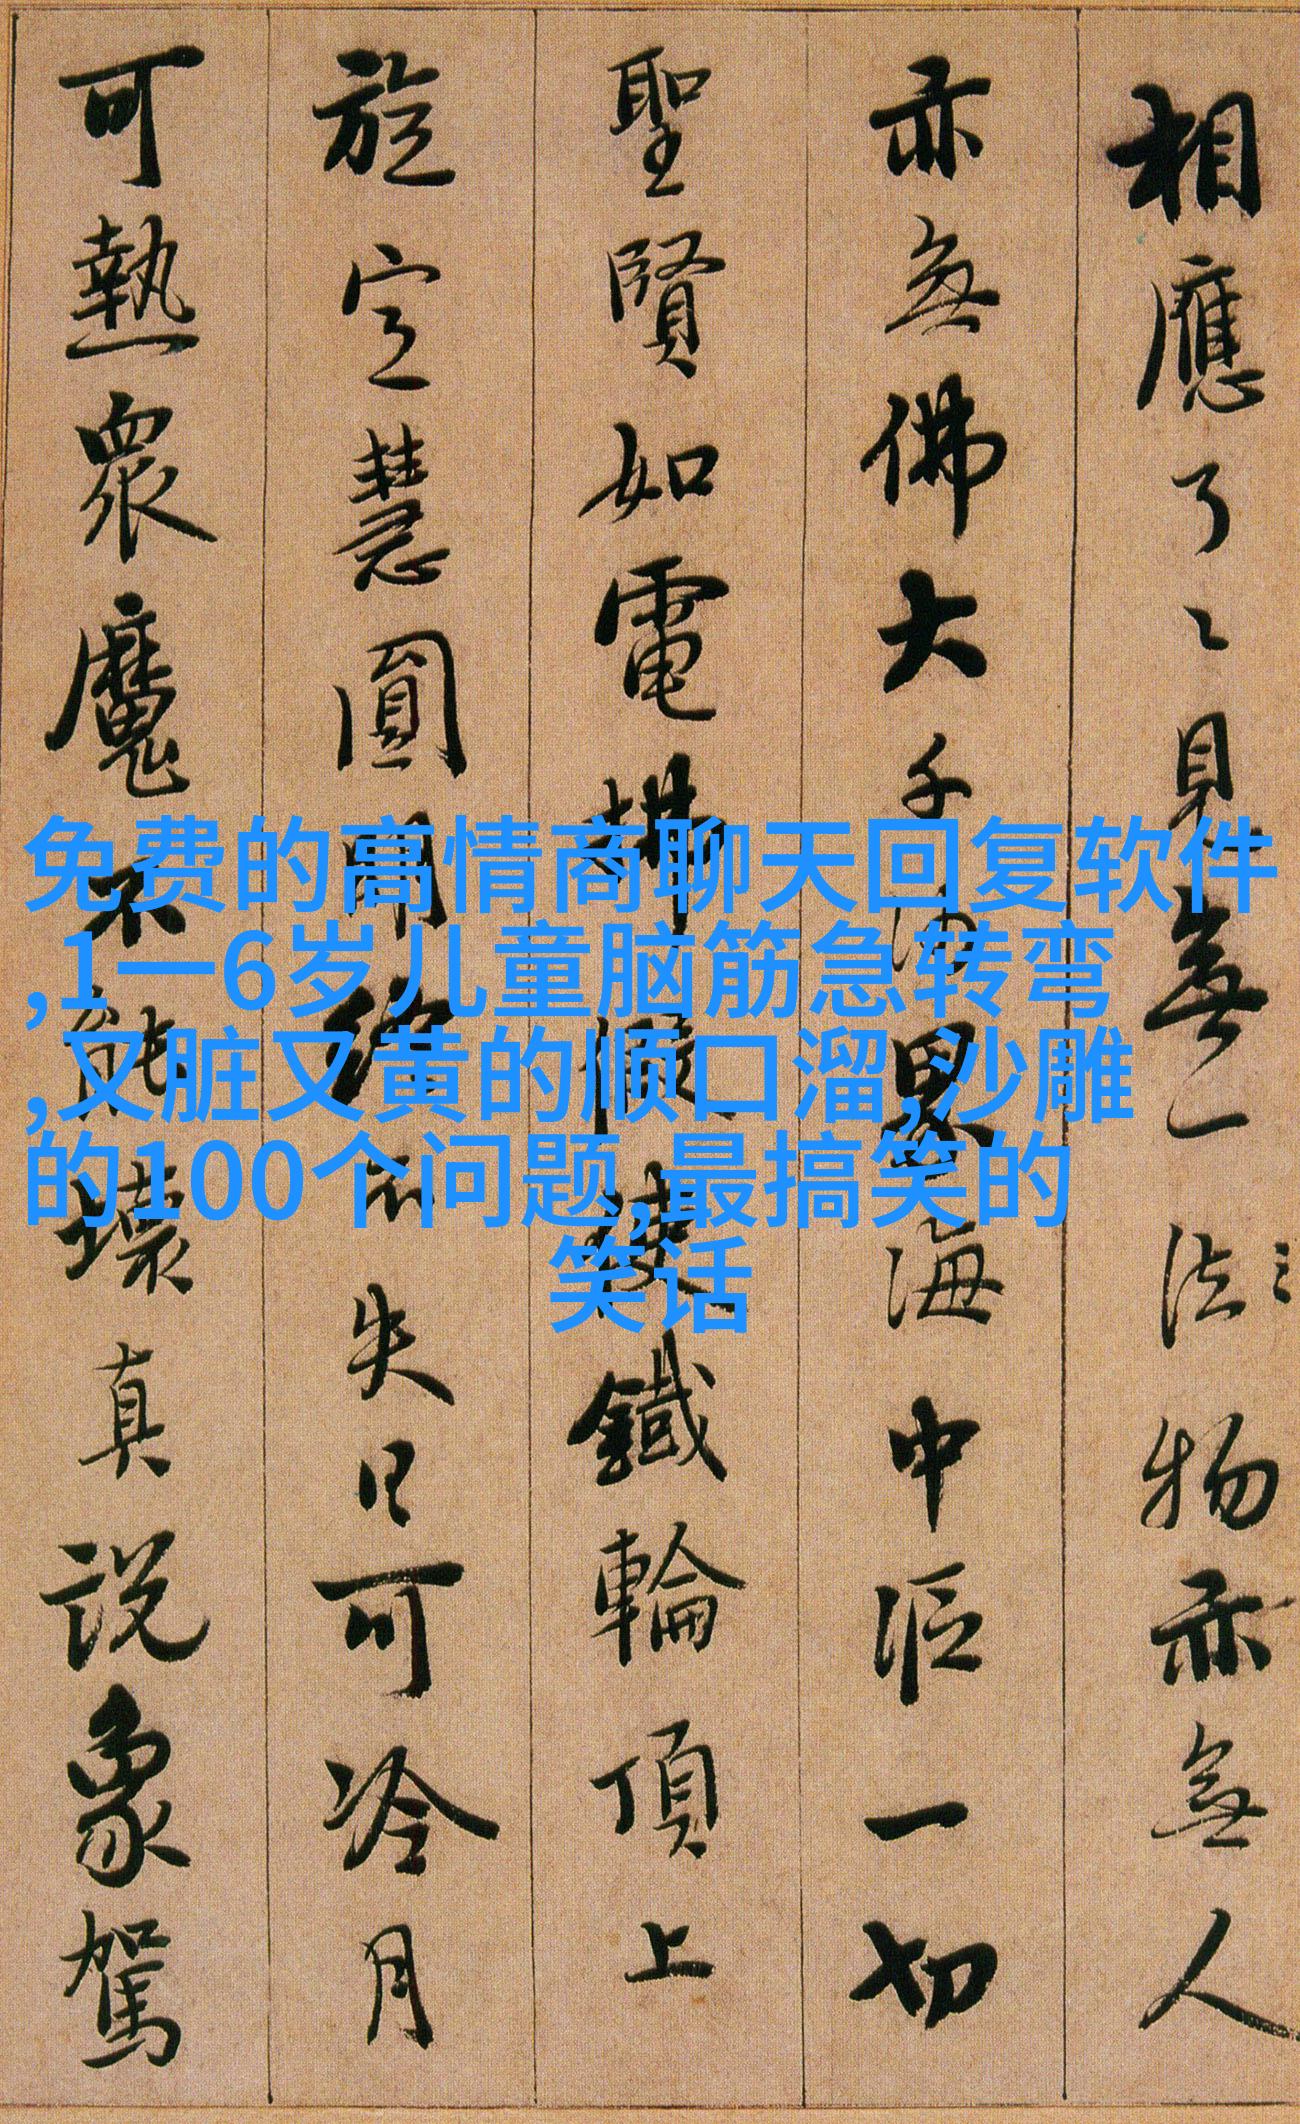 相應了〻見無一法物亦無人
亦無佛大千沙界海中漚一切
聖賢如電拂假使鐵輪頂上
旋定慧圓明終不失日可冷月
可熱眾魔不能壞真說象駕
免费的高情商聊天回复软件
,1一6岁儿童脑筋急转弯
,又脏又黄的顺口溜,沙雕
的100个问题,最搞笑的
笑话